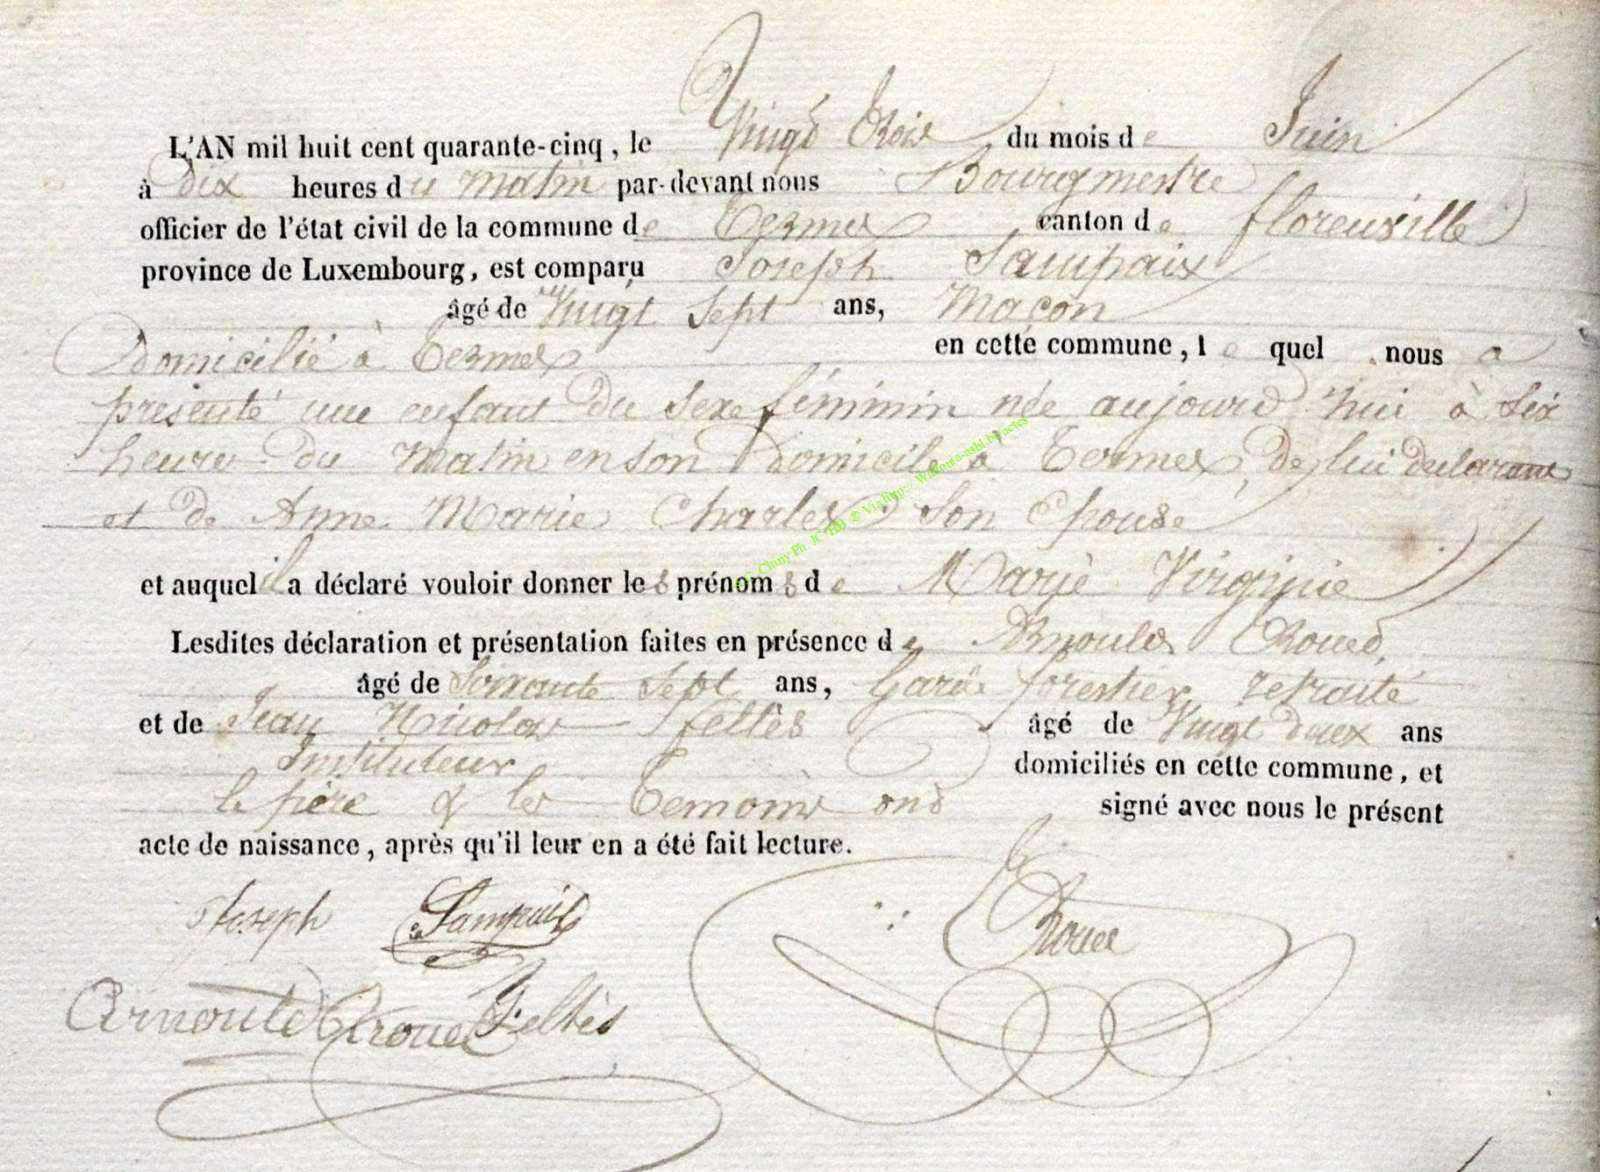 L'AN mil huit cent quarante-cinq, le Vingt Trois du mois de Juin
à Dix heures du matin par-devant nous Bourgmestre
officier de l'état civil de la commune de Termes canton de florenville
province de Luxembourg, est comparu Joseph Sampaix
âgé de Vingt Sept ans, Maçon
Domicilié à Termes en cette commune, lequel nous a
présenté une enfant du sexe féminin née aujourd'hui à Six
heures du Matin en son Domicile à Termes, de lui declarant
et de Anne Marie Charles, Son Epouse
et auquel il a déclaré vouloir donner les prénoms de Marie Virginie
Lesdites déclaration et présentation faites en présence de Arnould
âgé de Soixante Sept ans, Garde forestier retraité
et de Jean Nicolas feltès âgé de Vingt deux ans
Instituteur domiciliés en cette commune, et
le père & les Temoins ond signé avec nous le présent
acte de naissance, après qu'il leur en a été fait lecture.
Joseph Sampaix
Arnould Feltès